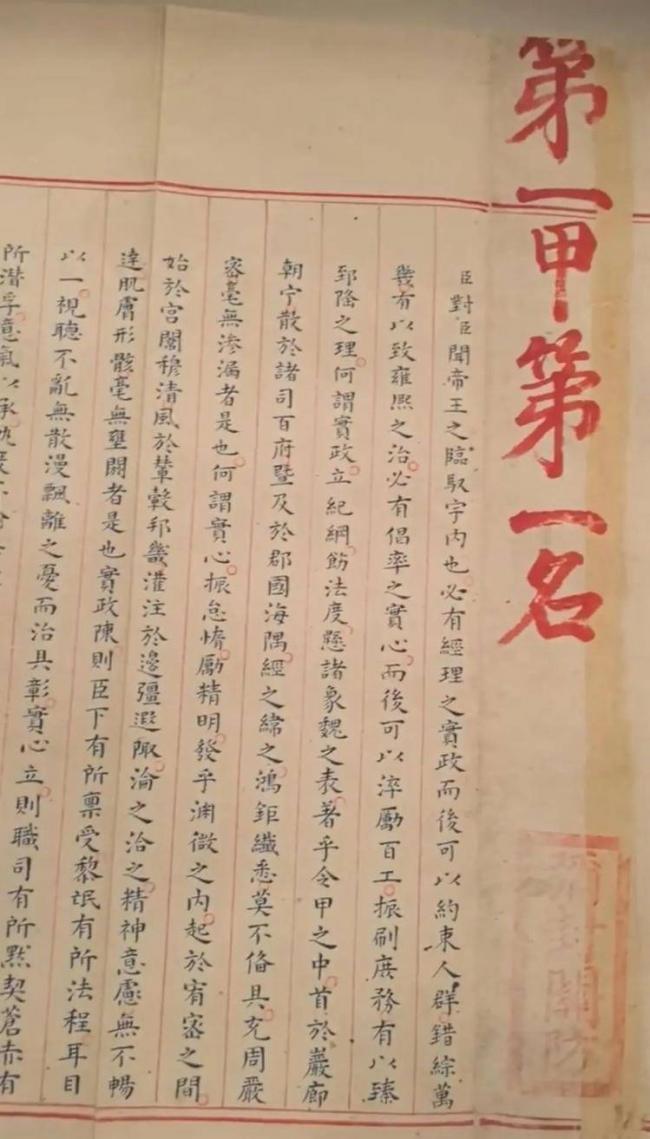 第一甲第一名
臣對臣聞帝王之臨馭宇內也必有經理之實政而後可以約束人群錯綜萬
幾有以致雍熙之治必有倡率之實心而後可以淬勵百工振刷庶務有以臻
郅隆之理何謂實政立紀綱飭法度懸諸象魏之表著乎令甲之中首於巖廊
朝宁散於諸司百府暨及於郡國海隅經之緯之鴻鉅纖悉莫不俻具充周嚴
密毫無滲漏者是也何謂實心振怠惰勵精明發乎渊微之內起於宥密之間
始於宮闈穆清風於輦轂邦畿灌注於邊疆遐陬淪之洽之精神意慮無不暢
達肌膚形骸毫無壅閼者是也實政陳則臣下有所稟受黎氓有所法程耳目
以一視聽不亂無散漫飄離之憂而治具彰實心立則職司有所默契蒼赤有
所潛孚意氣以承
關防